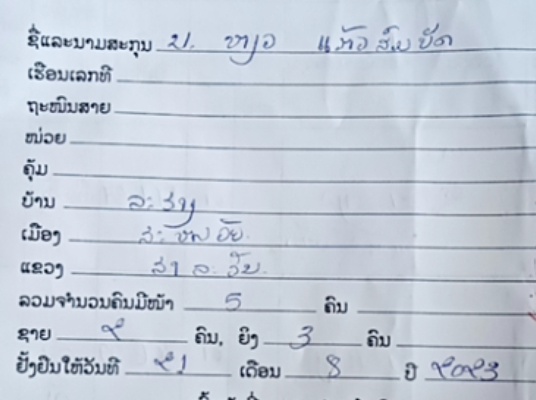 ຊື່ແລະນາມສະກຸນ ນ. ຫຽວ ແກ້ວສົມບັດ
ເຮືອນເລກທີ
ຖະໜົນສາຍ
ໜ່ວຍ
ຄຸ້ມ
ບ້ານ
ເມືອງ
ແຂວງ ສາລະວັນ
ລວມຈຳນວນຄົນມີໜ້າ 5 ຄົນ
ຊາຍ ໒ ຄົນ, ຍິງ 3 ຄົນ
ຢັ້ງຢືນໃຫ້ວັນທີ ໒1 ເດືອນ 8 ປີ ໒໐໒3